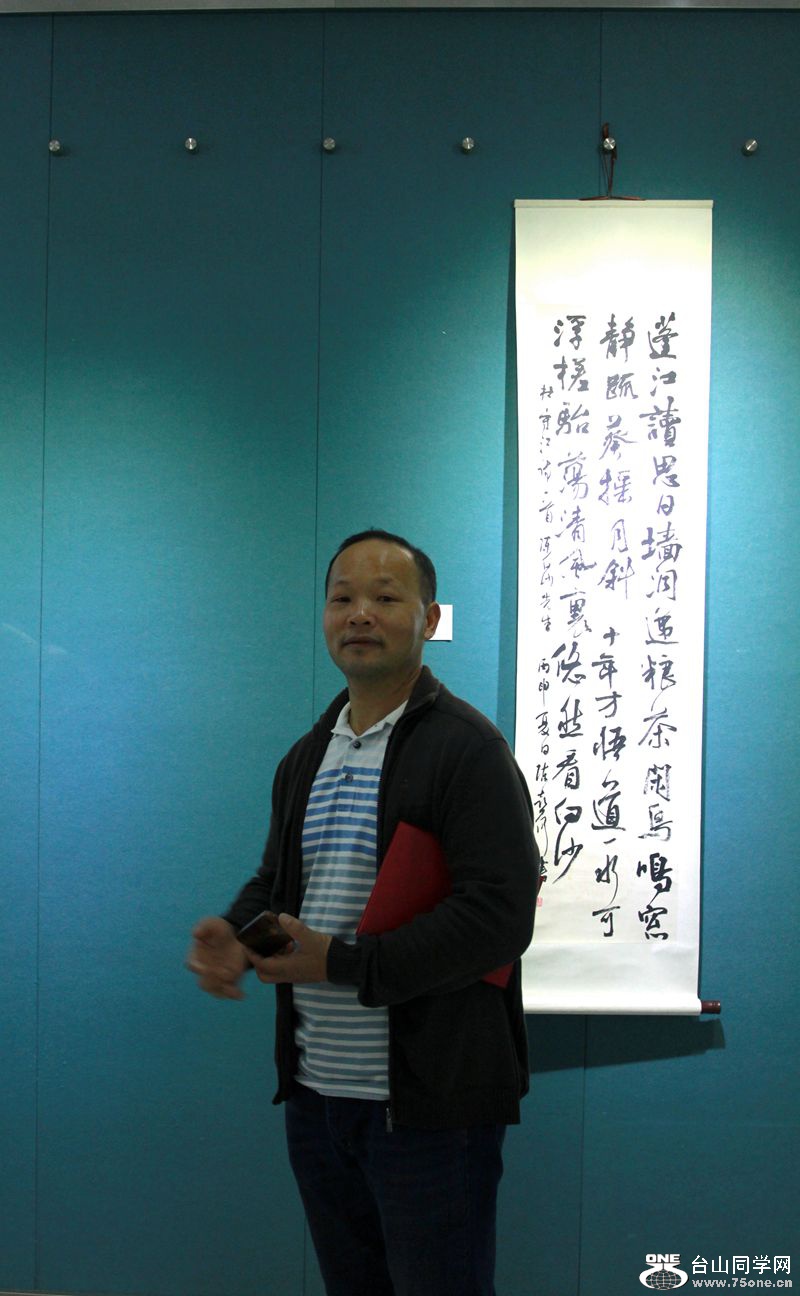 蓬江讀思日墙洞边粮茶閒鳥鳴窓
静疏葵摇月斜十年才悟道一水可
浮槎駘蕩清風裏悠然看白沙
先生丙申夏日陈
ONE
台山同学网
www.75one.cn